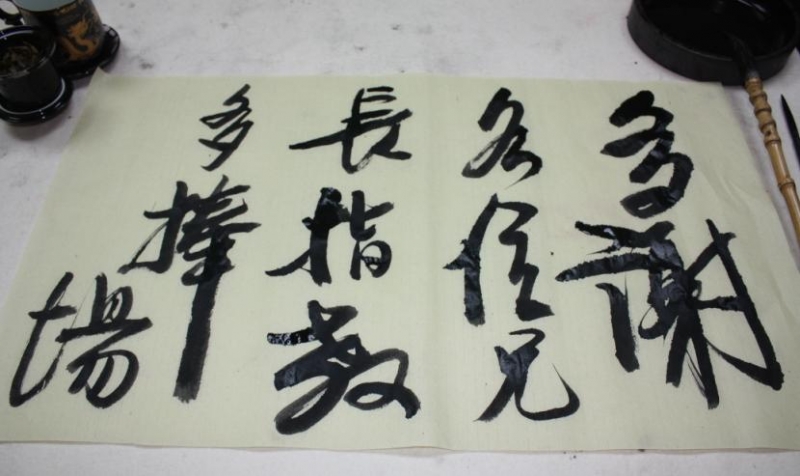 多謝
各位兄
長指教
多捧
場